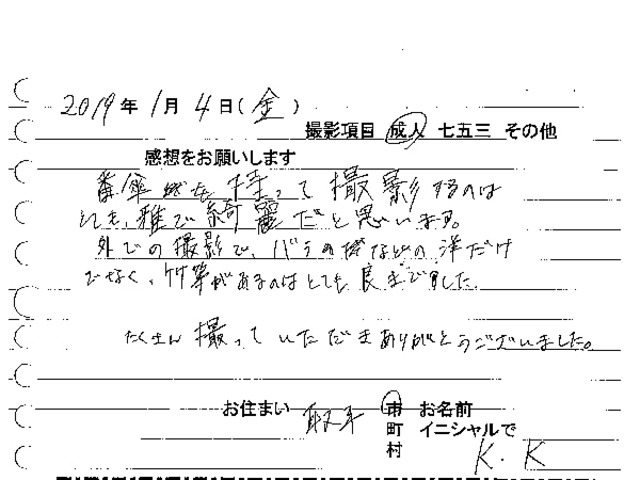 2019年 1月 4日(金)
撮影項目 成人 七五三 その他
感想をお願いします
番傘 を持って撮影するのは
とても雅で綺麗だと思います。
外での撮影で、バラの などの洋だけ
でなく、竹等があるのはとても良 でした。
たくさん撮っていただきありがとうございました。
お住まい 取手 市 お名前
町 イニシャルで
村 K.K